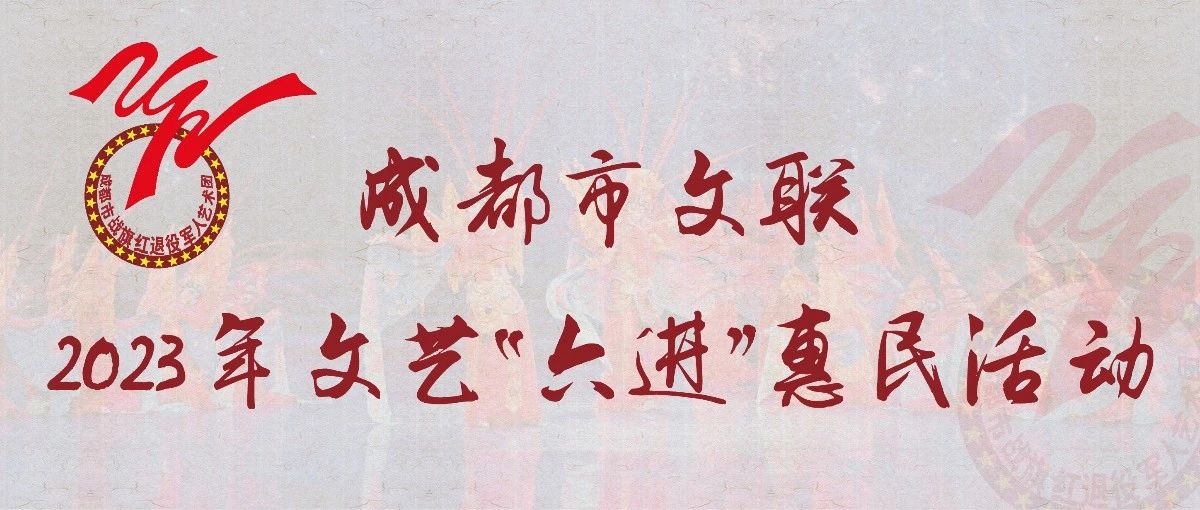 成都市战旗红退役军人艺术团
成都市文联
2023年文艺“六进”惠民活动